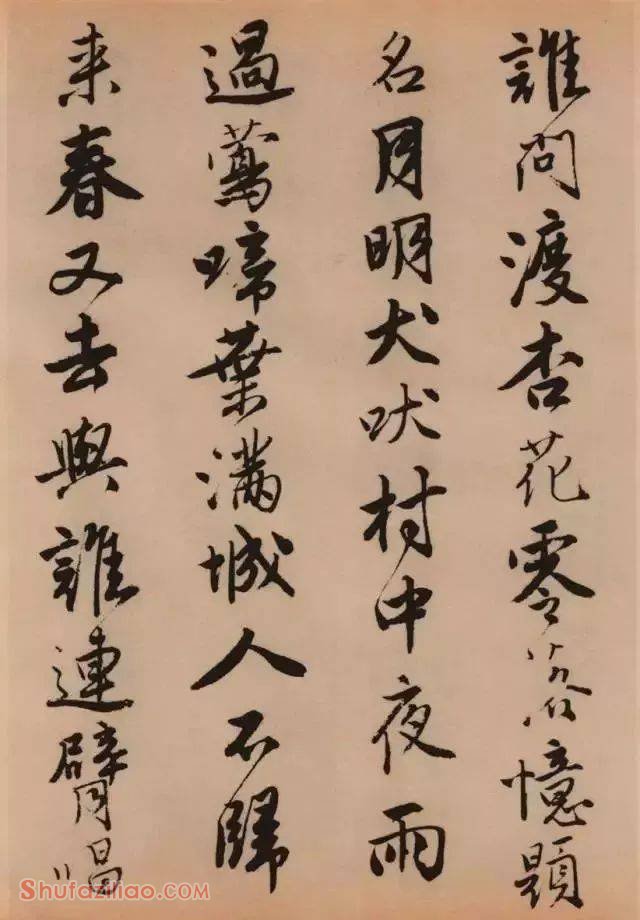 誰問渡杏花零落憶題
名月明犬吠村中夜雨
過鶯啼葉滿城人不歸
来春又去與誰連臂唱
Shufaziliao.com